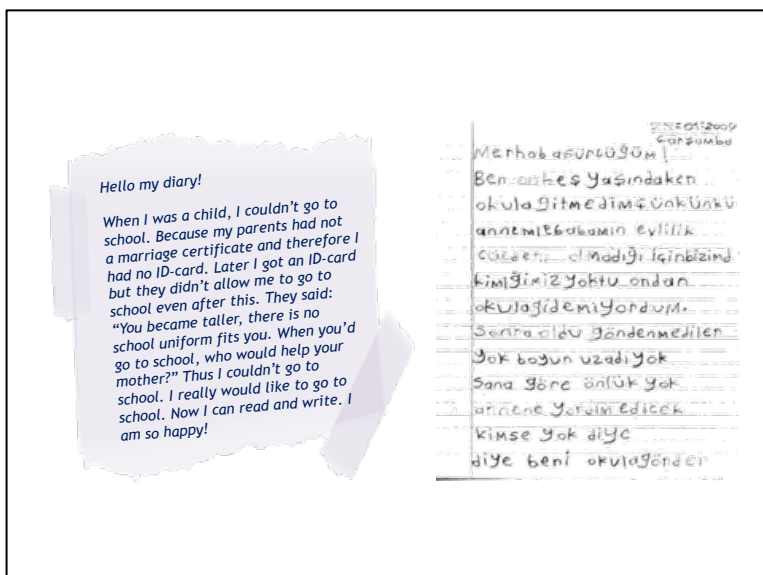 Hello my diary!
When I was a child, I couldn't go to
school. Because my parents had not
a marriage certificate and therefore I
had no ID-card. Later I got an ID-card
but they didn't allow me to go to
school even after this. They said:
“You became taller, there is no
school uniform fits you. When you'd
go to school, who would help your
mother?” Thus I couldn't go to
school. I really would like to go to
school. Now I can read and write. I
am so happy!
01.2009
Çarşamba
Merhaba
Ben on beş yaşındaken
okula gitmedim çünkünkü
annemlebabamın evlilik
olmadığı içinbizimd
kimliğimiz yoktu ondan
okulagidemiyordum.
Sonra oldu göndenmediler
yok boyun uzadı yok
Sana göre önlük yok
annene yardım edicek
kimse yok diye
diye beni okulagönder